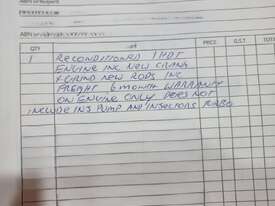 ABN
ABN
QTY PRICE G.S.T TOTAL
1 RECONDITIONED 1HDT
ENGINE INC NEW CRANK
NEW RODS INC
FREIGHT 6 MONTH WARRANTY
ON ENGINE ONLY DOES NOT
INCLUDE INJ PUMP AND INJECTORS TURBO